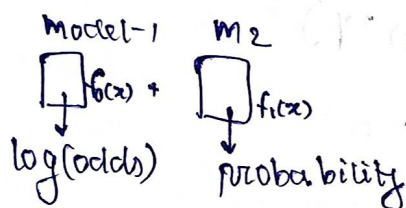 model-1 M2
f0(x) + f1(x)
log(odds) probability